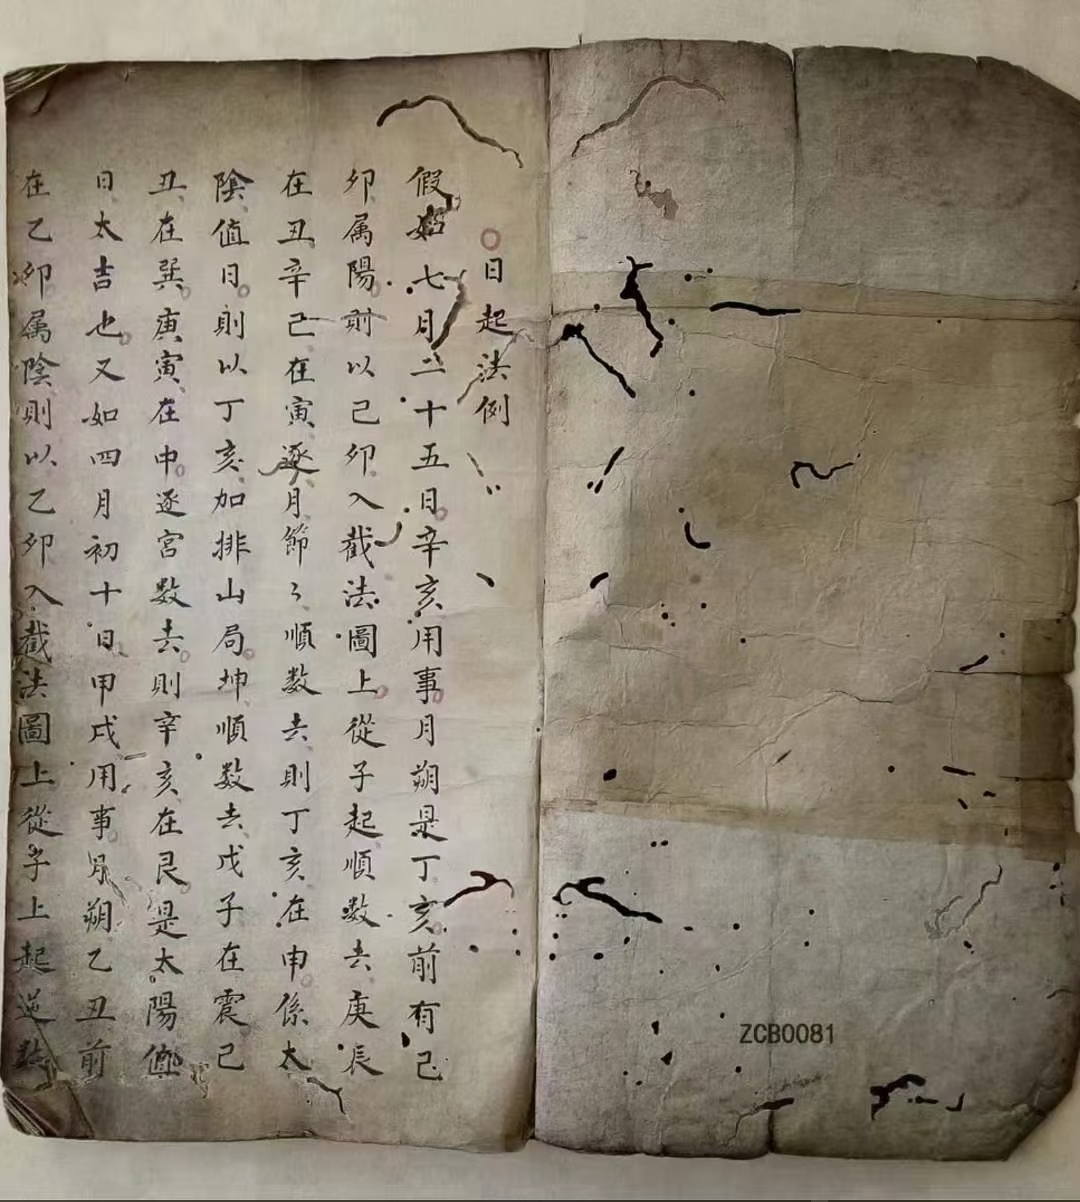 ○日起法例
假如七月二十五日辛亥用事月朔是丁亥前有己
卯属陽則以己卯入截法圖上從子起順数去庚辰
在丑辛己在寅逐月節々順数去則丁亥在申係太
陰值日則以丁亥加排山局坤順数去戊子在震己
丑在巽庚寅在中逐宮数去則辛亥在艮是太陽值
日太吉也又如四月初十日甲戌用事月朔乙丑前
在乙卯属陰則以乙卯入截法圖上從子上起逆数
ZCB0081